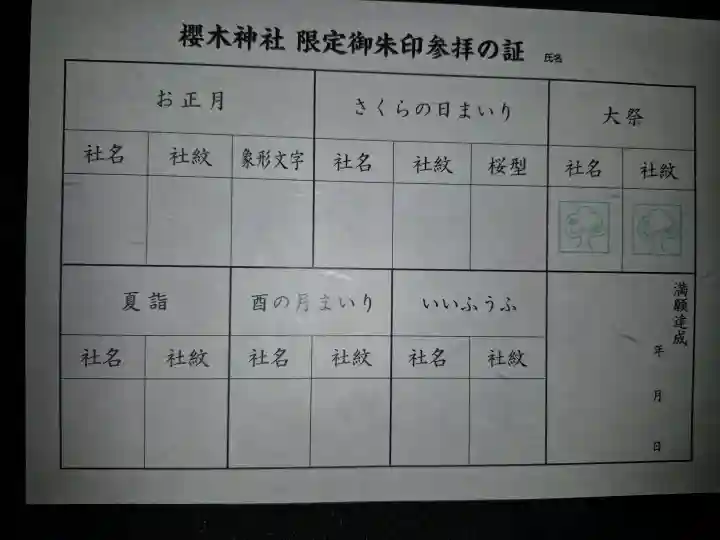 櫻木神社 限定御朱印参拝の証 氏名
お正月 さくらの日まいり 大祭
社名 社紋 象形文字 社名 社紋 桜型 社名 社紋
夏詣 酉の月まいり いいふうふ
社名 社紋 社名 社紋 社名 社紋
満願達成
年
月
日